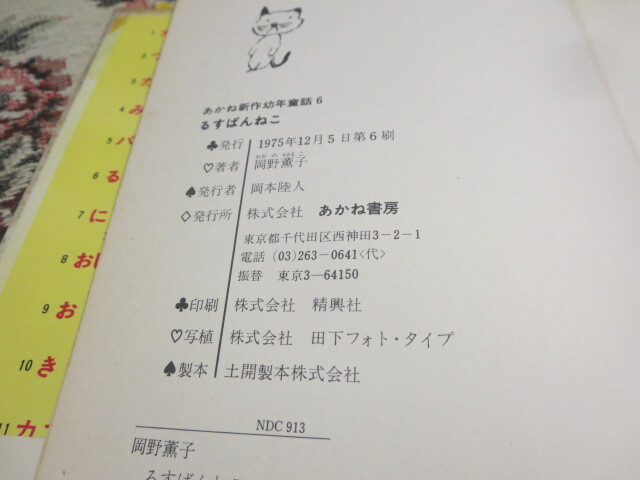 あかね新作幼年童話6
るすばんねこ
♣発行 1975年12月5日第6刷
おかのかおるこ
♡著者 岡野薫子
♠発行者 岡本陸人
◇発行所 株式会社 あかね書房
東京都千代田区西神田3−2−1
電話 (03)263−0641<代>
振替 東京3−64150
♣印刷 株式会社 精興社
♡写植 株式会社 田下フォト・タイプ
♠製本 土開製本株式会社
NDC 913
岡野薫子
るすばんねこ
1
2
3 カ
4 み
5 バ
6 る
7 に
8 おに
9 お
10 き
11 カ